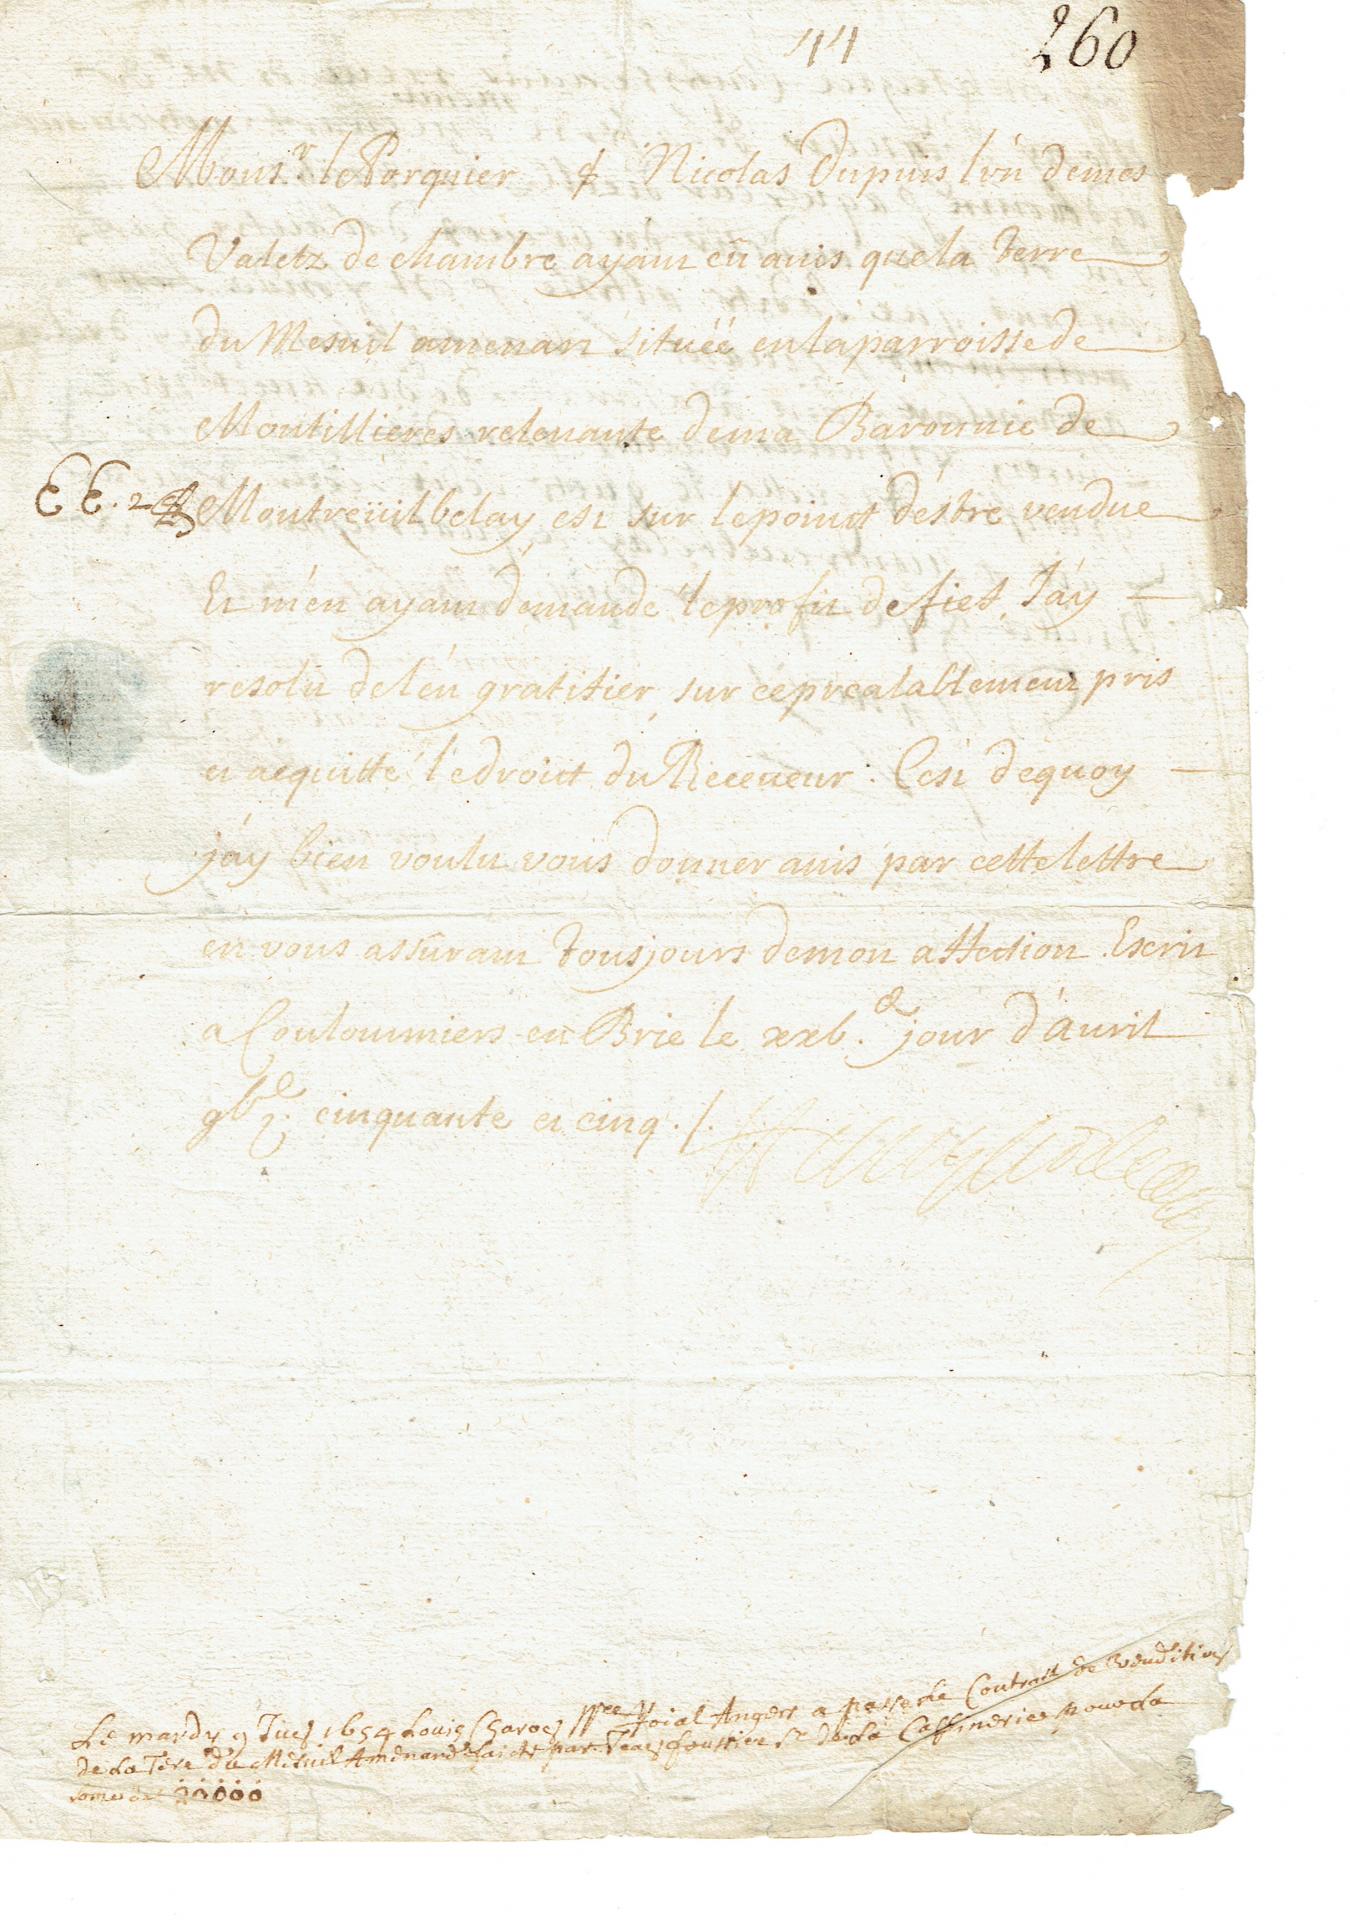 44
260
Mons.r le Porquier & Nicolas Dupuis l'vn de mes
Valetz de chambre ayant eü auis que la Terre
du Mesnil amenart situéé en la parroisse de
Montillieres releuante de ma Baronnie de
Montreüil belay est sur le poinct d'éstre vendue
Et m'en ayant demandé le profit de fief, J'ay
resolu de l'en gratifier, sur ce prealablement pris
et acquitté le droict du Receueur. C'est dequoy
j'ay bien voulu vous donner auis par cette lettre
en vous assurant tousjours de mon affection. Escrit
a Couloumiers en Brie le xxb.e jour d'auril
cinquante et cinq ./.
Le mardy 9 1654 Louis Angers a passé le Contrait de Vendition
de la Tere du Mesnil Amenard faicte par Sr de la pour la
some de 20000